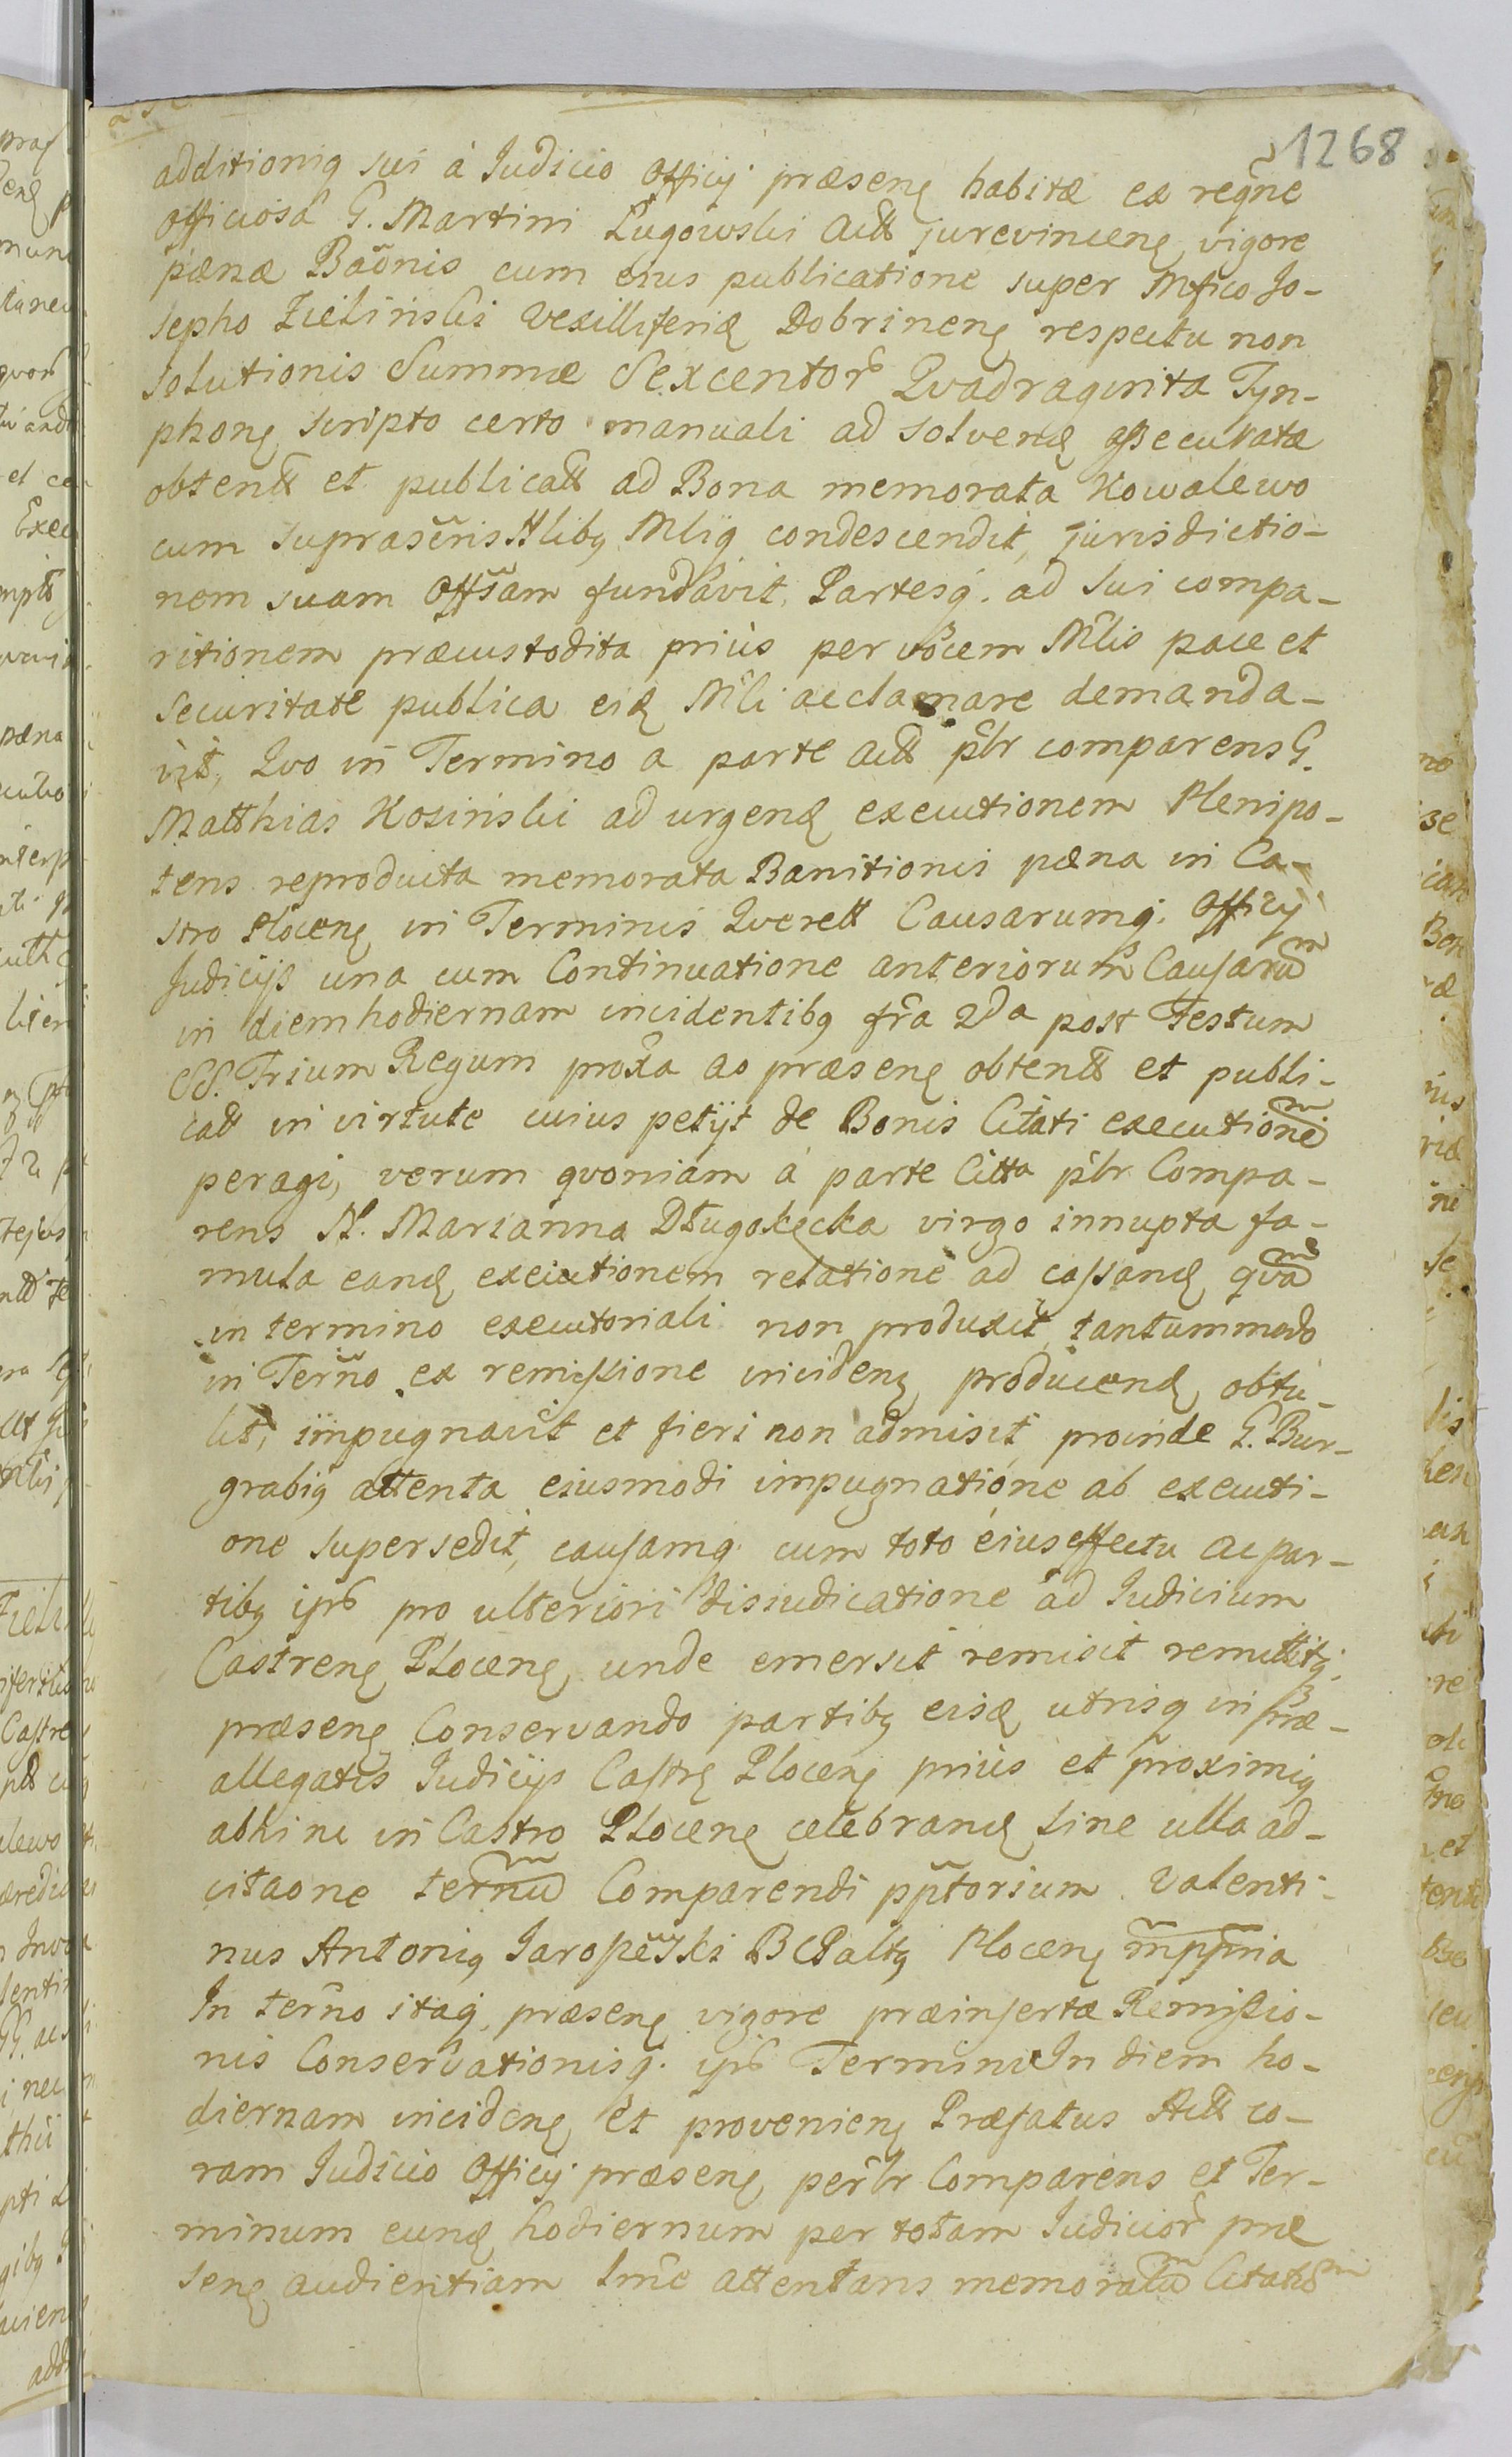 1268
additioniq sui à Judicio Officij præsenę habitæ ex reqne
officiosa G. Martini Ługowski Actt jurevincenę vigore
pænæ Baõnis cum eius publicatione super Mfico Jo-
sepho Zielinski Vexilliferię Dobrinenę respectu non
solutionis Summæ Sexcentor Qvadraginta Tyn-
phonę scripto certo manuali ad solvenę assecuratæ
obtentt et publicatt ad Bona memorata Kowalewo
cum suprascris Nlibq Mlijq condescendit, jurisdictio-
nem suam Offsam fundavit, Partesq. ad sui compa-
ritionem præcustodita priùs per vocem Mlis pace et
securitate publica eię Mli acclamare demanda-
vit, Qvo in Termino a parte Actt plr comparens G.
Matthias Kosinski ad urgenę executionem Plenipo-
tens reproducta memorata Banitionis pæna in Ca-
stro Plocenę in Terminis Qverell Causarumq. Officij
Judicijs una cum Continuatione anteriorum Causaru
in diem hodiernam incidentibq fra 2da post Festum
SS. Trium Regum proxa ao præsenę obtentt et publi-
catt in virtute cuius petijt de Bonis Citati executione
peragi, verum qvoniam à parte Citta plr Compa-
rens N. Marianna Długokęcka virgo innupta fa-
mula eanę executionem relatione ad cassanę qva
in termino executoriali non produxit, tantummodo
in Terño ex remissione incidenę producenę obtu-
lit, impugnavit et fieri non admisit proinde G. Bur-
grabiq attenta eiusmodi impugnatione ab executi-
one supersedit, causamq cum toto eius effectu ac par-
tibq ips pro ulteriori disiudicatione ad Judicium
Castrenę Plocenę, unde emersit remisit remittitq.
præsenę Conservando partibq eisę utrisq in præ-
allegatis Judicijs Castrę Plocenę priùs et proximiq
abhinc in Castro Plocenę celebranę sine ulla ad-
citaone ternu Comparendi pptorium. Valenti-
nus Antoniq Jaropeski BCPaltq Plocenę mppria
In terño itaq, præsenę vigore præinsertæ Remissio-
nis Conservationisq. ips Termini In diem ho-
diernam incidenę et provenienę Præfatus Actt co-
ram Judicio Officij præsenę perlr Comparens et Ter-
minum eunę hodiernum per totam Judicior præ
senę audientiam lme attentans memoratu Citatu